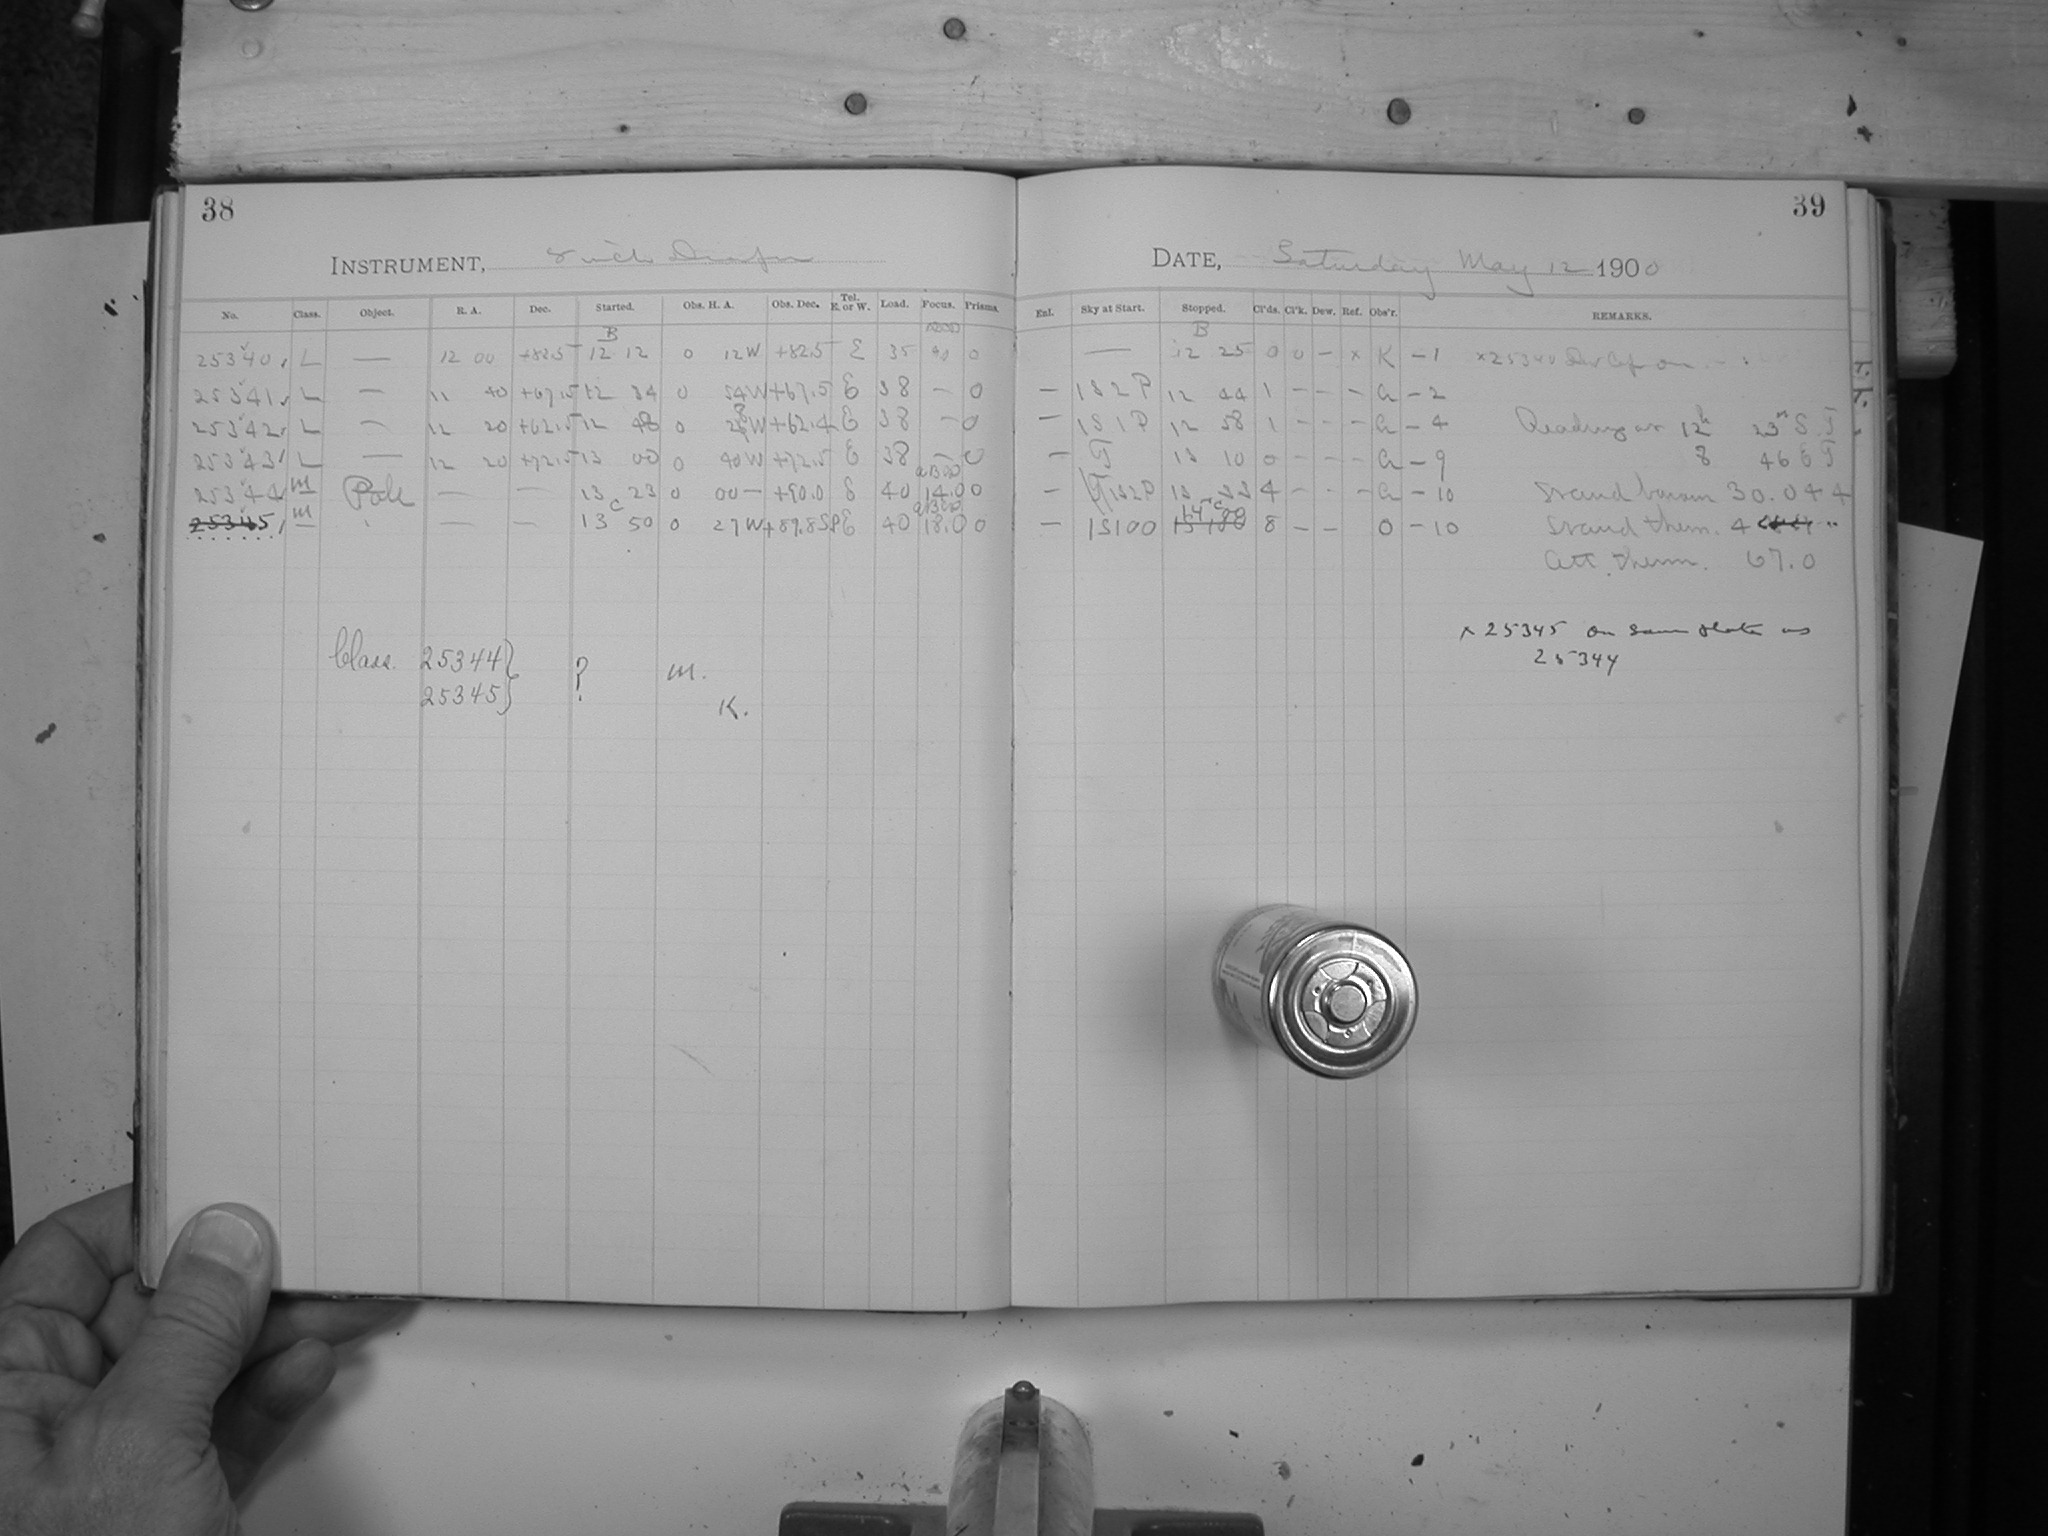 38
INSTRUMENT, 8 inch Draper
No. Class. Object. R. A. Dec. Started. Obs. H. A. Obs. Dec. Tel. E. or W. Load. Focus. Prisms.
B
25340 L — 12 00 +82.5 12 12 0 12W +82.5 E 35 90 0
25341 L — 11 40 +67.5 12 34 0 54W +67.5 E 38 — 0
25342 L — 12 20 +62.5 12 48 0 28W +62.4 E 38 — 0
25343 L — 12 20 +72.5 13 00 0 40W +72.5 E 38 — 0
25344 m Pole — — 13 23 0 00 — +90.0 E 40 14.0 0
25345 m " — — 13 50 0 27W +89.8SP E 40 18.0 0
Class. 25344 } ? m.
25345 }
K.
39
DATE, Saturday May 12 1900
Enl. Sky at Start. Stopped. Cl'ds. Cl'k. Dew. Ref. Obs'r. REMARKS.
B
— 12 25 0 0 — x K – 1 x25340 Dew Cap on
— 1S2P 12 44 1 – – – – 2
— 1S1P 12 58 1 – – – – 4 Reading at 12h 23m S.T
— 13 10 0 – – – – 9 8 46 E T
— 1S2P 13 33 4 – – – – 10 Stand barom 30.044
— 1S100 8 – – O – 10 Stand therm. 4
Att. therm. 67.0
x 25345 on same plate as
25344